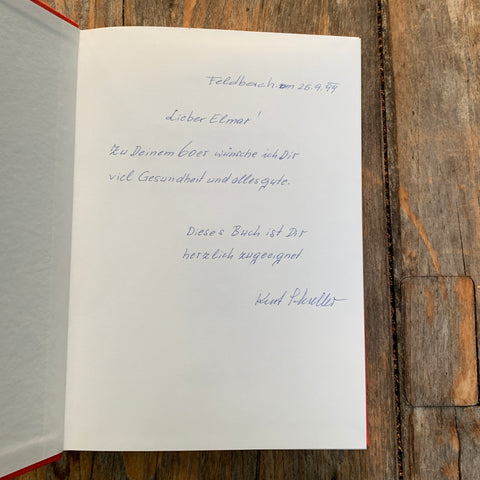 Feldbach. am 26.9.99
Lieber Elmar!
Zu Deinem 60er wünsche ich Dir
viel Gesundheit und alles gute.
Dieses Buch ist Dir
herzlich zugeeignet
Kurt